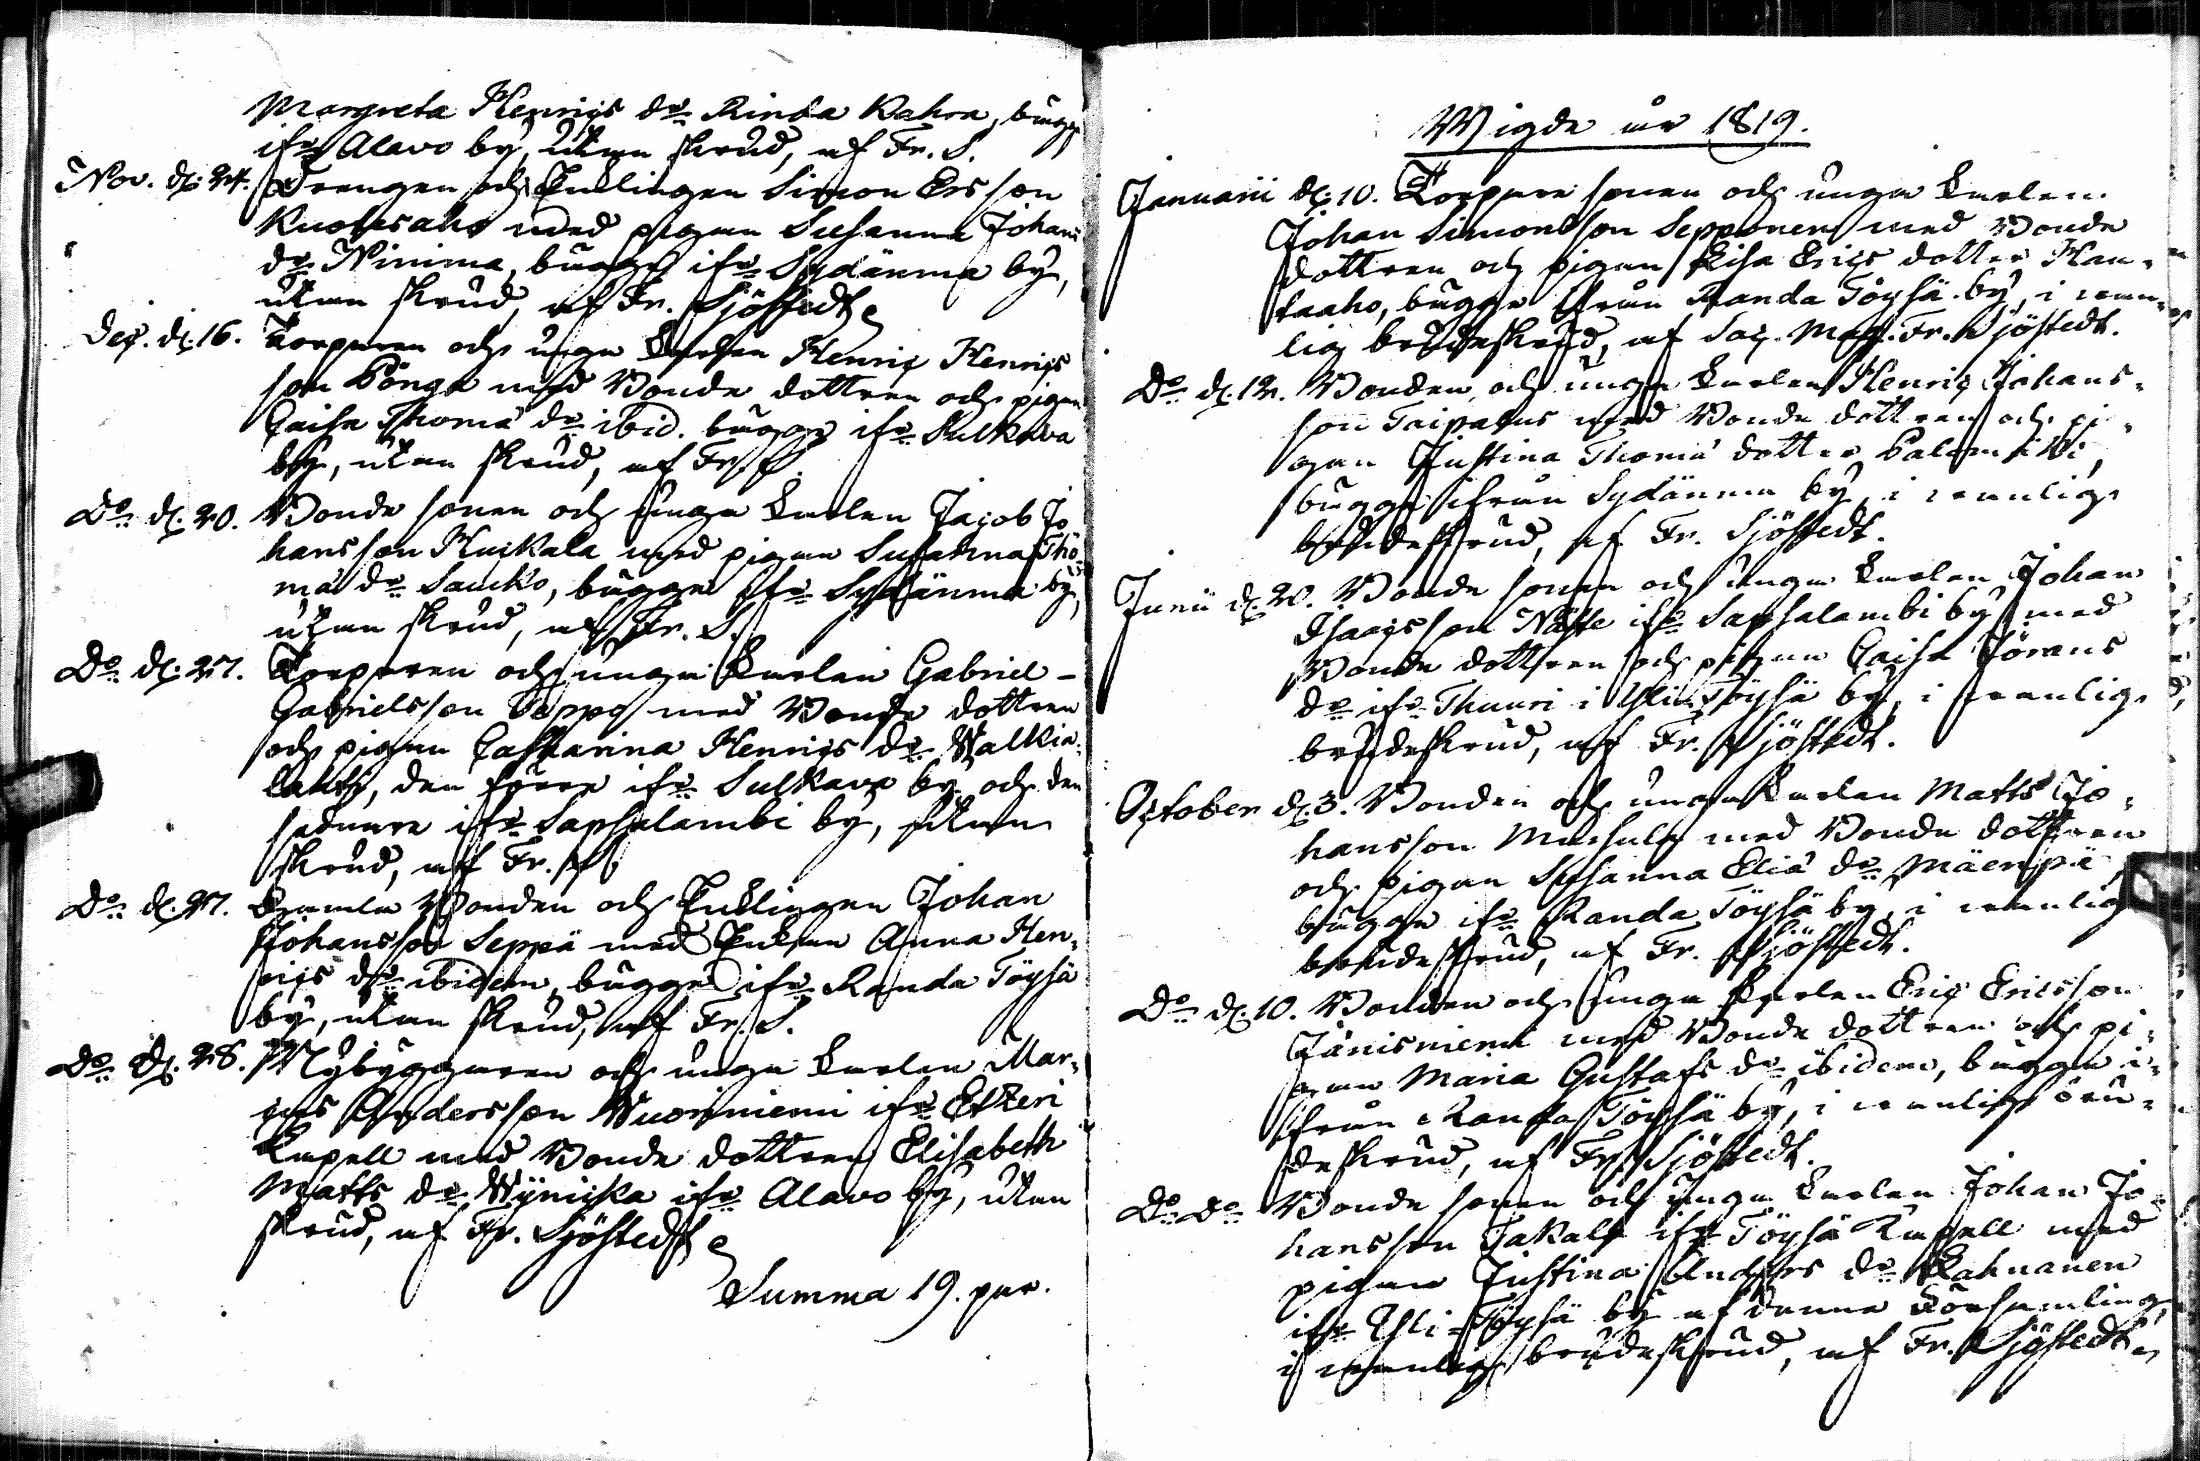 Margreta Henrics dr Rinda Kahra, bägge
ifr Alavo by, utan skrud, af Fr. S.
Nov. d. 24. Drengen och Enklingen Simon Ersson
Kuoresaho med pigan Susanna Johans
dr Ninima, bägge ifr Sydänma by,
utan skrud, af Fr. Sjöstedt
Dec. d. 16. Torparen och unga Karlen Henric Henrics
son Pönge med Bonde dottren och pigan
Caisa Thomæ dr ibid. bägge ifr Sulkava
by, utan skrud, af Fr. S.
Do d. 20. Bonde sonen och unga Karlen Jacob Jo
hansson Huckala med pigan Susanna Tho
mæ dr Saucko, bägge ifr Sydänma by,
utan skrud, af Fr. S.
Do d. 27. Torparen och unga Karlen Gabriel
Gabrielsson Seppo med Bonde dottren
och pigan Catharina Henrics dr Walkia-
lahti, den förre ifr Sulkava by och den
sednare ifr Sapsalambi by, utan
skrud, af Fr. S.
Do d. 27. Gamla Bonden och Enklingen Johan
Johansson Seppä med Enkan Anna Hen-
rics dr ibidem, bägge ifr Randa Töysä
by, utan skrud, af Fr. S.
Do d. 28. Nybyggaren och unga Karlen Mar-
cus Andersson Wuoriniemi ifr Etzeri
Kapell med Bonde dottren Elisabeth
Matts dr Wynicka ifr Alavo by, utan
skrud, af Fr. Sjöstedt
Summa 19. par.
Wigde år 1819.
Januarii d. 10. Torpare sonen och unga Karlen
Johan Simonsson Sepponen med Bonde
dottren och pigan Lisa Erics dotter Han-
kaaho, bägge ifrån Randa Töysä by, i ären-
lig brudeskrud, af Sac. Mag. Fr. Sjöstedt.
Do d. 12. Bonden och unga Karlen Henric Johans-
son Taipalus med Bonde dottren och pi-
gan Justina Thomæ dotter Palomäki,
bägge ifrån Sydänma by, i ärenlig
brudeskrud, af Fr. Sjöstedt.
Junii d. 20. Bonde sonen och unga Karlen Johan
Isacsson Nässe ifr Sapsalambi by med
Bonde dottren och pigan Caisa Görans
dr ifr Thuuri i Yli-Töysä by, i ärenlig
brudeskrud, af Fr. Sjöstedt.
October d. 3. Bonden och unga Karlen Matts Jo-
hansson med Bonde dottren
och pigan Susanna Eliæ dr Mäenpä
bägge ifr Randa Töysä by, i ärenlig
brudeskrud, af Fr. Sjöstedt.
Do d. 10. Bonden och unga Karlen Eric Ericsson
Jänisniemi med Bonde dottren och pi-
gan Maria Gustafs dr ibidem, bägge i-
från Randa Töysä by, i ärenlig bru-
deskrud, af Fr. Sjöstedt.
Do Do Bonde sonen och unga Karlen Johan Jo-
hansson Jakala ifr Töysä Kapell med
pigan Justina Anders dr Kahnanen
ifr Yli-Töysä by af denna Församling,
i ärenlig brudeskrud, af Fr. Sjöstedt